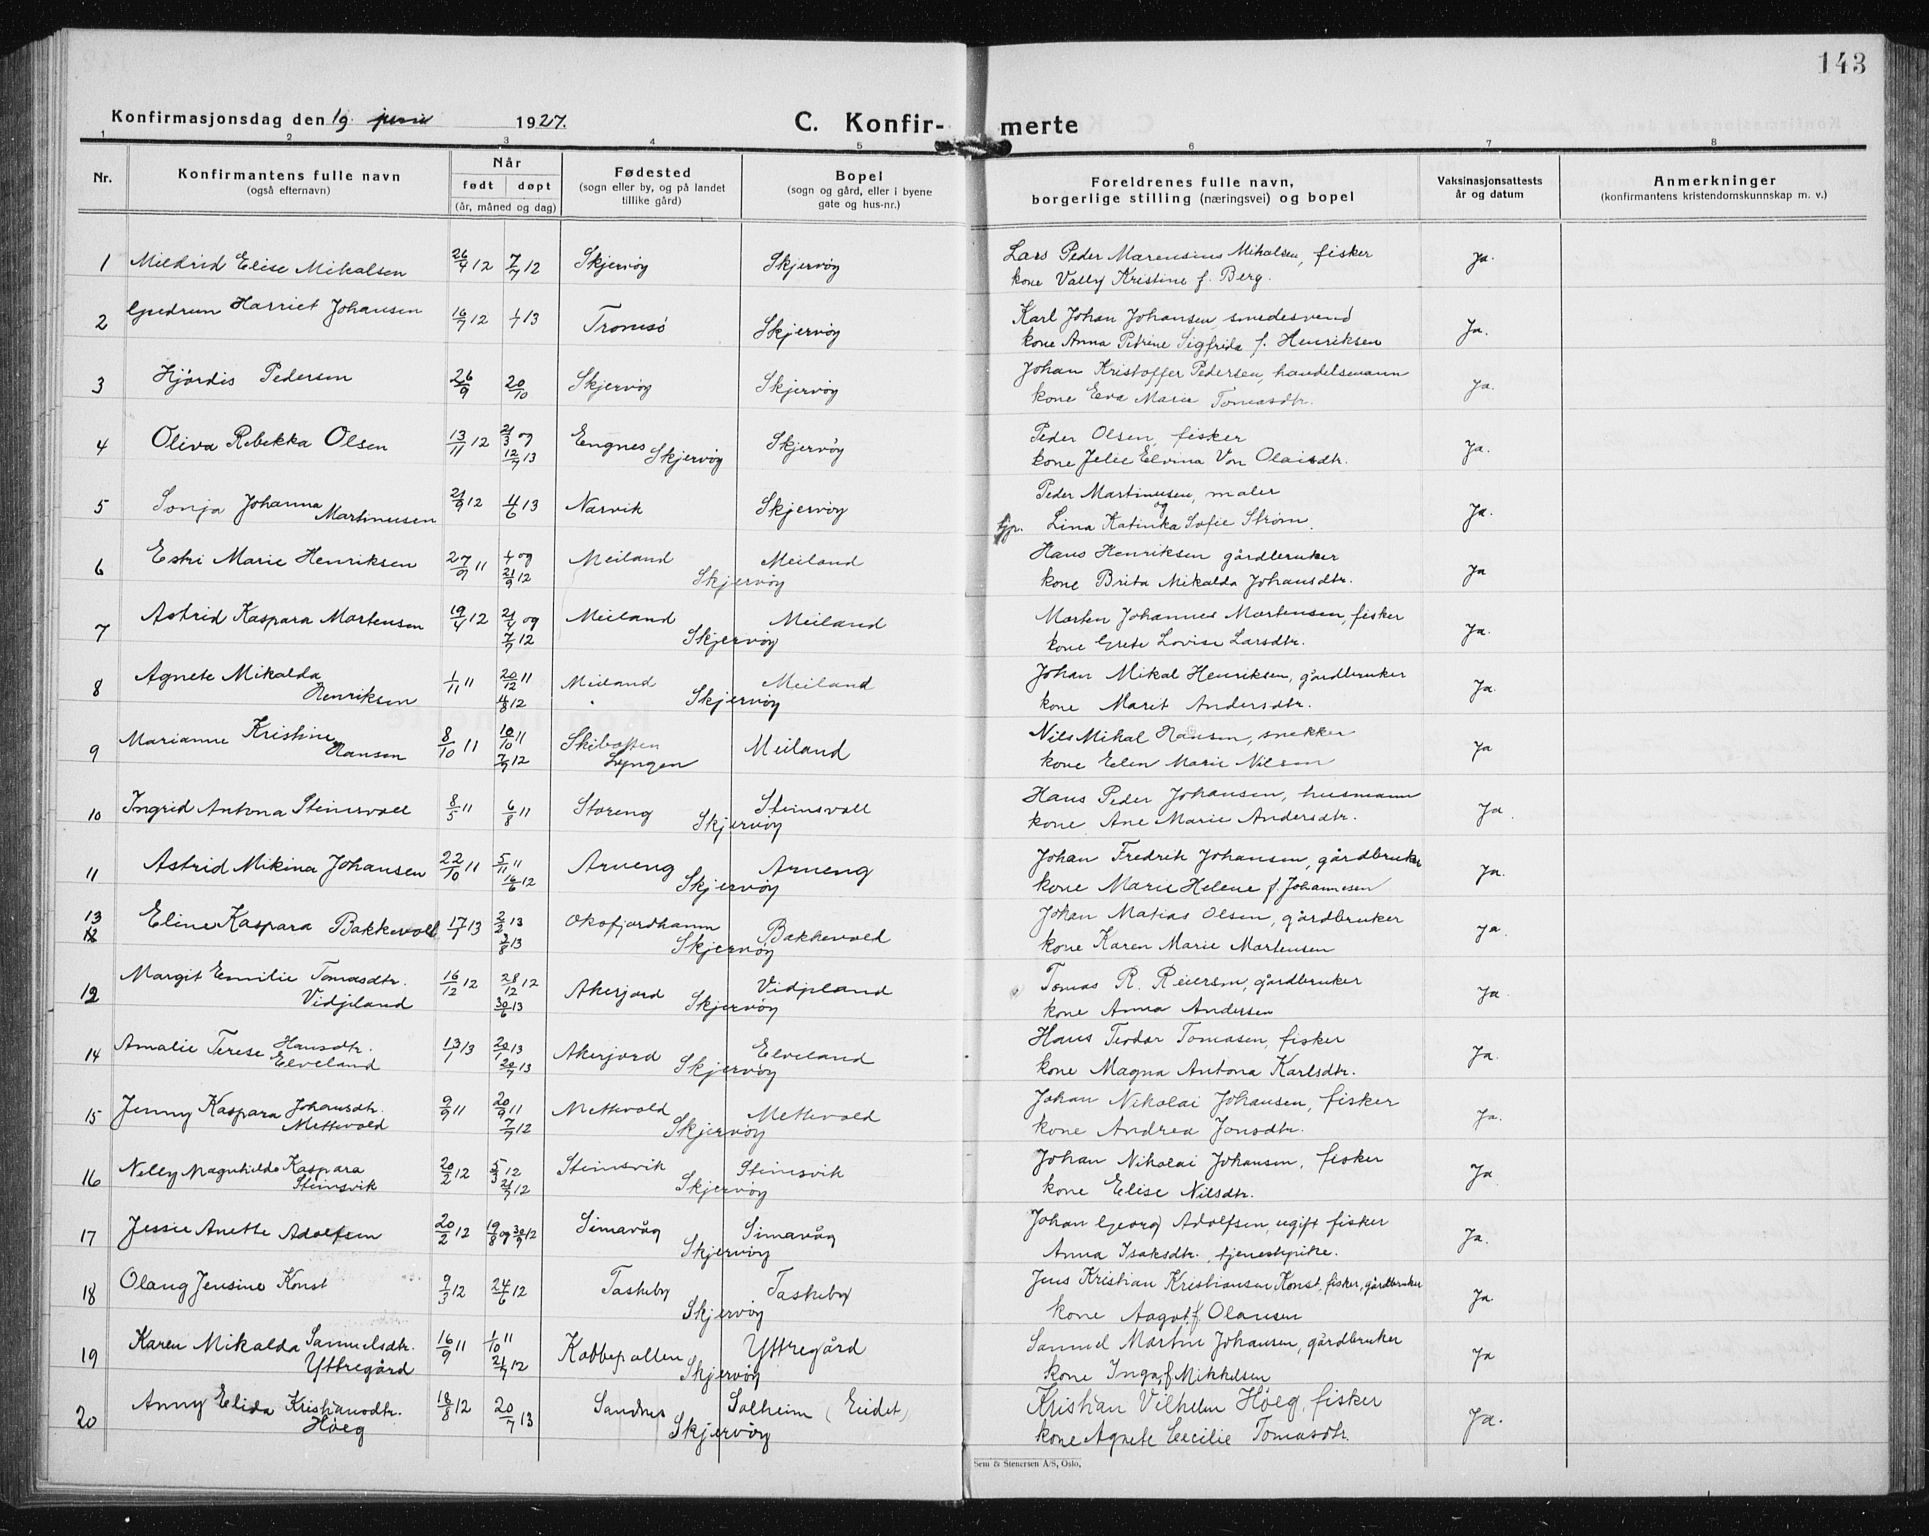 143
Konfirmasjonsdag den 19 juni 1927.
C. Konfir-merte
1 2 3 4 5 6 7 8
Nr.
Konfirmantens fulle navn
(også efternavn)
Når
født døpt
(år, måned og dag)
Fødested
(sogn eller by, og på landet
tillike gård)
Bopel
(sogn og gård, eller i byene
gate og hus-nr.)
Foreldrenes fulle navn,
borgerlige stilling (næringsvei) og bopel
Vaksinasjonsattests
år og datum
Anmerkninger
(konfirmantens kristendomskunnskap m. v.)
1 Mildrid Elise Mikalsen 26/4 12 7/7 12 Skjervöy Skjervöy Lars Peder Marensius Mikalsen, fisker Ja.
kone Vally Kristine f. Berg.
2 Gudrun Harriet Johansen 16/7 12 1/1 13 Tromsö Skjervöy Karl Johan Johansen, smedesvend Ja.
kone Anna Petrine Sigfrida f. Henriksen
3 Hjördis Pedersen 26/9 20/10 Skjervöy Skjervöy Johan Kristoffer Pedersen, handelsmann Ja.
kone Eva Marie Tomasdtr.
4 Oliva Rebekka Olsen 13/11 12 21/3 og Engnes Skjervöy Peder Olsen, fisker Ja.
12/7 13 Skjervöy kone Jelie Elvina Von Olaisdtr.
5 Sonja Johanna 21/9 12 4/6 13 Narvik Skjervöy Peder Martinusen, maler Ja.
Martinusen og
tjp. Lina Katinka Sofie Ström.
6 Estri Marie Henriksen 27/9 11 1/4 og Meiland Meiland Hans Henriksen gårdbruker Ja
21/9 12 Skjervöy kone Brita Mikalda Johansdtr.
7 Astrid Kaspara Martensen 19/4 12 21/4 og Meiland Meiland Marten Johannes Martensen, fisker Ja.
7/7 12 Skjervöy kone Grete Lovise Larsdtr.
8 Agnete Mikalda 1/11 11 20/12 11 Meiland Meiland Johan Mikal Henriksen, gårdbruker Ja.
Henriksen 4/8 12 Skjervöy kone Marit Andersdtr.
9 Marianne Kristine 8/10 11 10/10 11 Skibotten Meiland Nils Mikal Hansen, snekker Ja
Hansen 7/7 12 Lyngen kone Elen Marie Nilsen
10 Ingrid Antona Steinsvoll 8/5 11 6/8 11 Storeng Steinsvoll Hans Peder Johansen, husmann Ja.
Skjervöy kone Ane Marie Andersdtr.
11 Astrid Mikina Johansen 22/10 11 5/11 11 Arneng Arneng Johan Fredrik Johansen, gårdbruker Ja.
16/6 12 Skjervöy kone Marie Helene f. Johannesen
13 Eline Kaspara Bakkevold 17/1 13 2/2 13 Oksfjordhamn Bakkevold Johan Matias Olsen, gårdbruker Ja.
12 3/8 13 Skjervöy kone Karen Marie Martensen
12 Margit Emilie Tomasdtr. 16/12 12 28/12 12 Akerjord Vidjeland Tomas R. Reiersen, gårdbruker Ja.
Vidjeland 30/6 13 Skjervöy kone Anna Andersen
14 Amalie Terese Hansdtr. 13/1 13 20/1 13 Akerjord Elveland Hans Teodor Tomasen, fisker Ja.
Elveland 20/7 13 Skjervöy kone Magna Antona Karlsdtr.
15 Jenny Kaspara Johansdtr. 9/9 11 20/9 11 Mettevold Mettevold Johan Nikolai Johansen, fisker Ja.
Mettevold 7/7 12 Skjervöy kone Andrea Jonsdtr.
16 Nelly Magnhilda Kaspara 20/2 12 5/3 12 Steinsvik Steinsvik Johan Nikolai Johansen, fisker Ja
Steinsvik 21/7 12 Skjervöy kone Elise Nilsdtr.
17 Jessie Anette Adolfsen 20/2 12 19/8 og 30/9 12 Simavåg Simavåg Johan Georg Adolfsen, ugift fisker Ja.
Skjervöy Anna Isaksdtr. tjenestepike.
18 Olaug Jensine Konst 9/3 12 24/6 12 Taskeby Taskeby Jens Kristian Kristiansen Konst, fisker, gårdbruker Ja.
Skjervöy kone Aagot f. Olausen
19 Karen Mikalda Samuelsdtr. 16/9 11 1/10 11 Kobbepollen Yttregård Samuel Martin Johansen, gårdbruker Ja
Yttregård 21/7 12 Skjervöy kone Inga f. Mikkelsen
20 Anny Elida Kristiansdtr. 18/8 12 20/7 13 Sandnes Solheim (Eidet) Kristian Vilhelm Höeg, fisker Ja.
Höeg Skjervöy kone Agnete Cecilie Tomasdtr.
Sem & Stenersen A/S, Oslo.